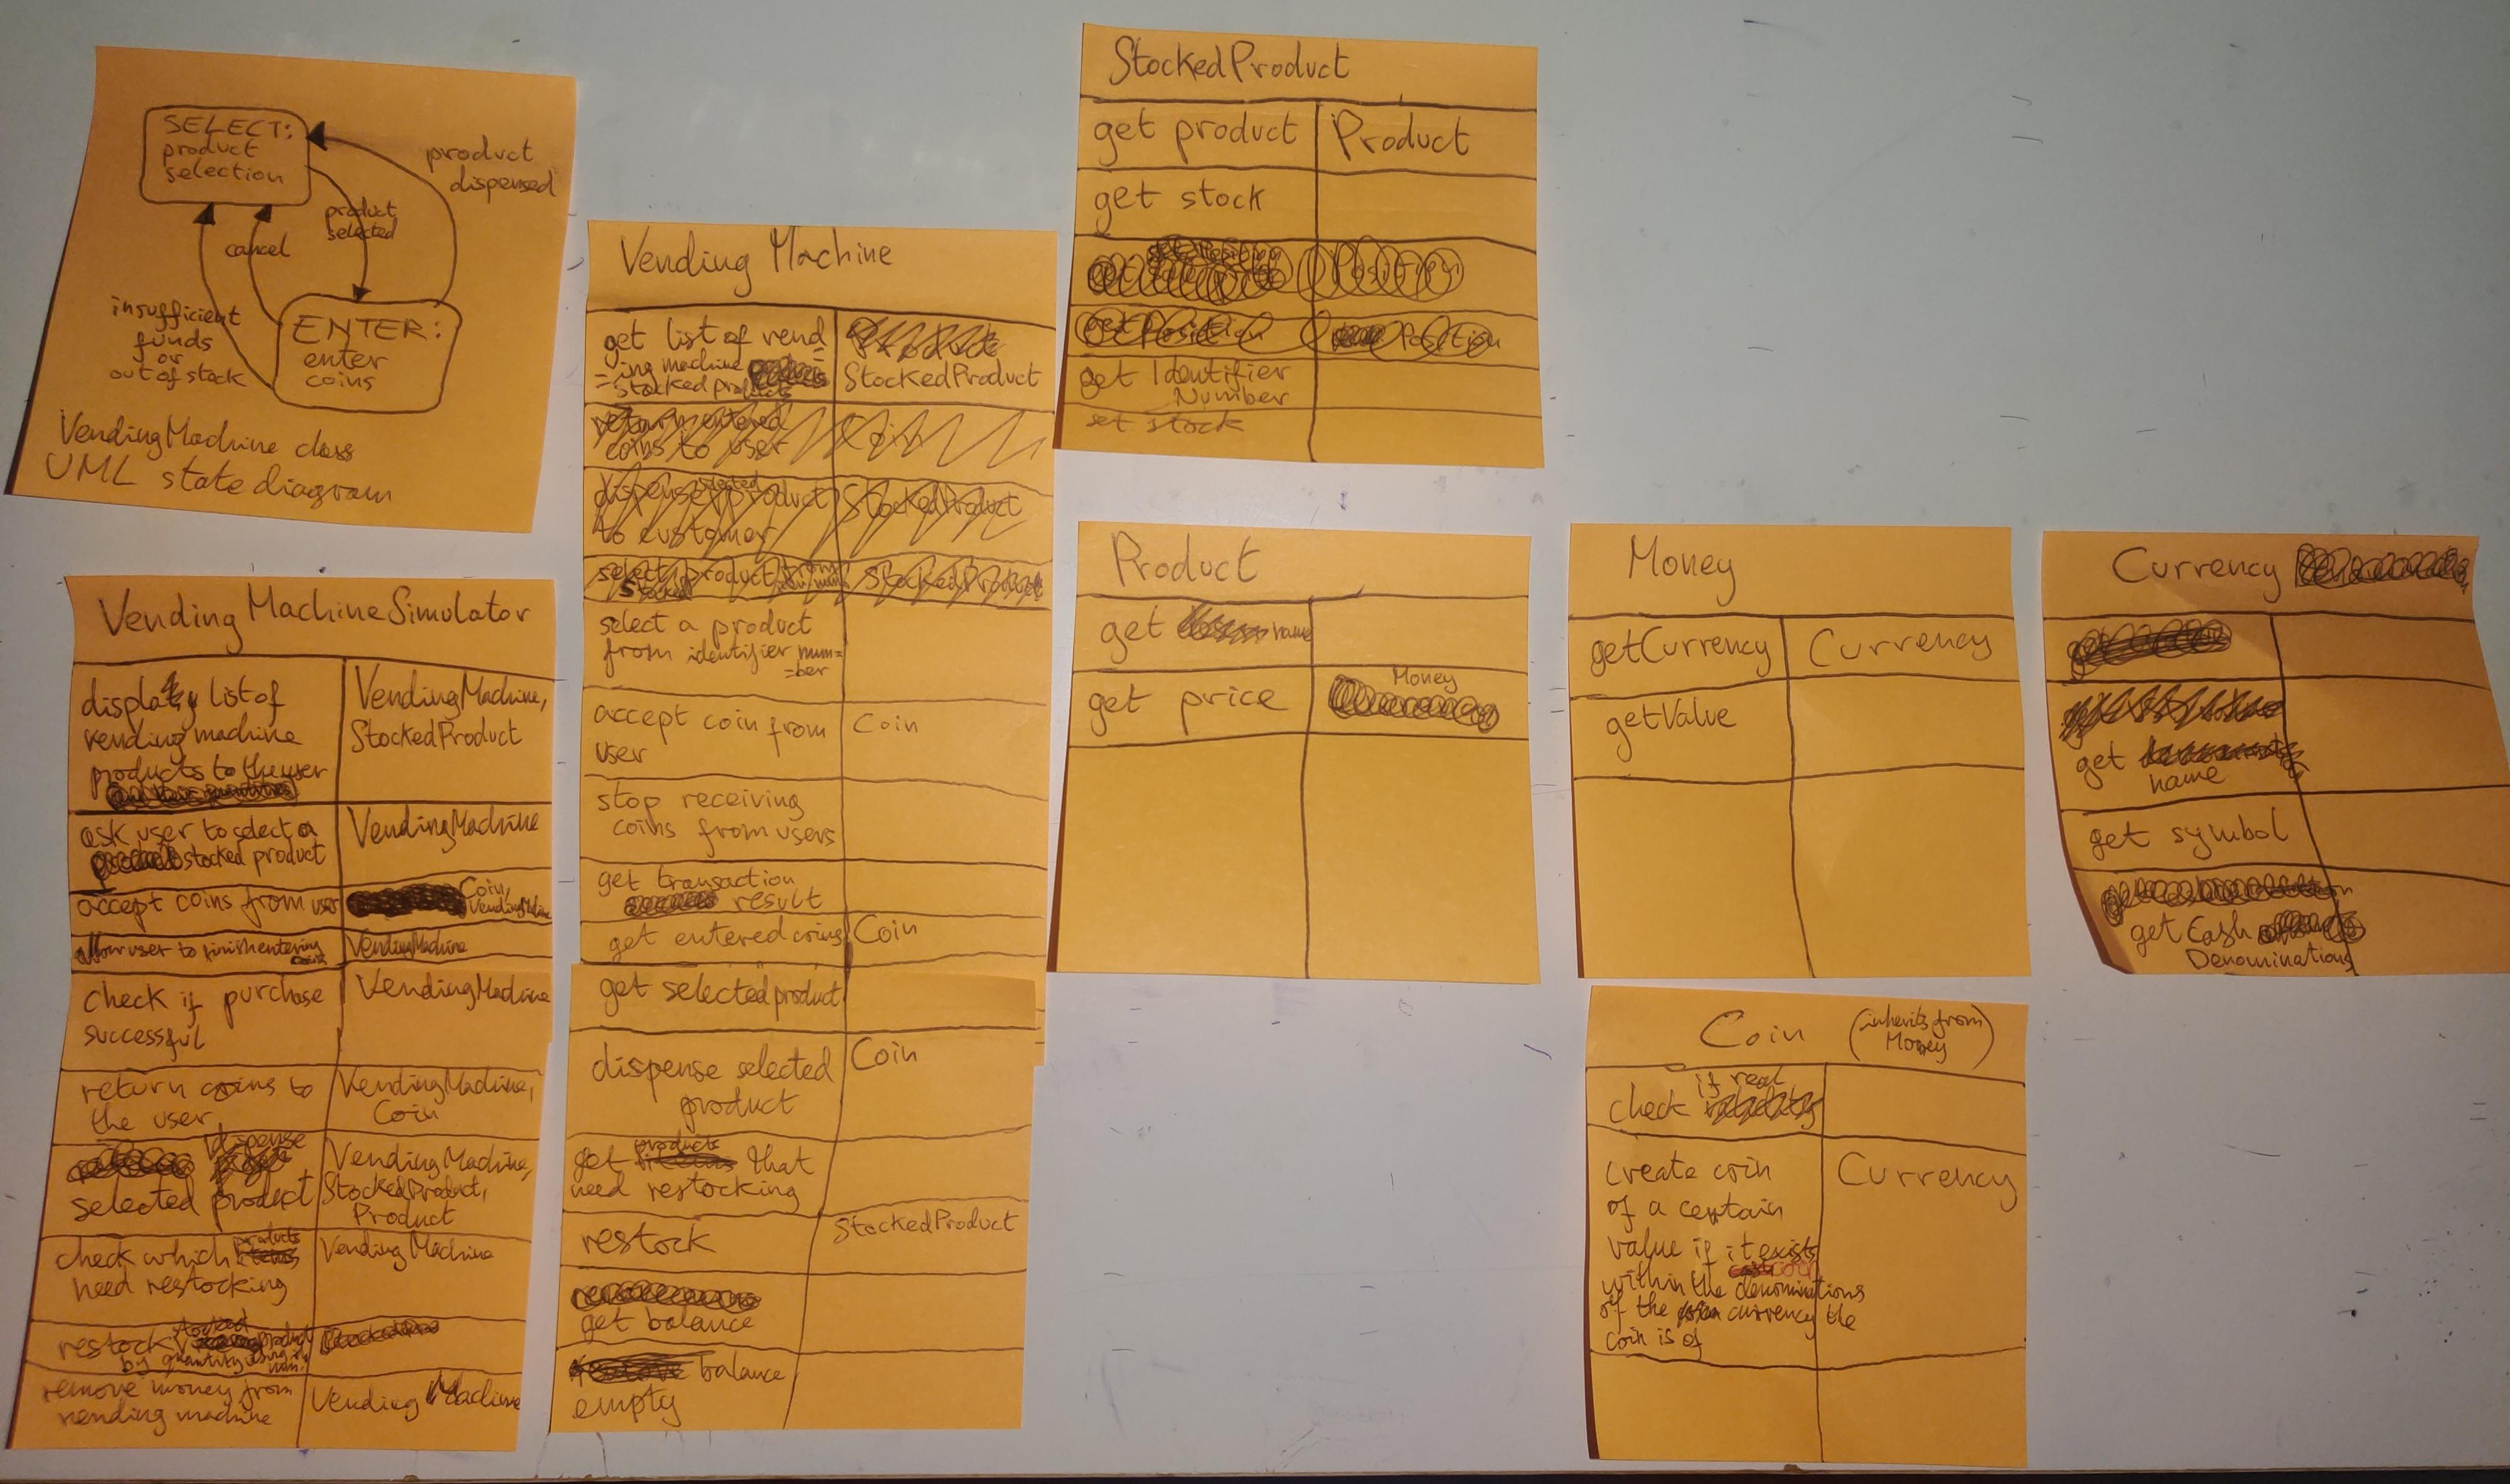 SELECT:
product
selection
product
dispensed
product
selected
cancel
insufficient
funds
or
out of stock
ENTER:
enter
coins
VendingMachine class
UML state diagram
VendingMachineSimulator
display list of
vending machine
products to the user
VendingMachine,
StockedProduct
ask user to select a
stocked product
VendingMachine
accept coins from user
Coin,
VendingMachine
allow user to finish entering
coins
VendingMachine
check if purchase
successful
VendingMachine
return coins to
the user
VendingMachine,
Coin
dispense
selected product
VendingMachine,
StockedProduct,
Product
check which products
need restocking
VendingMachine
restock stocked product
by quantity using
num.
remove money from
vending machine
Vending Machine
Vending Machine
get list of vend
=ing machine
stocked products
StockedProduct
return entered
coins to user
Coin
dispense selected product
to customer
StockedProduct
select product from
Stocked
StockedProduct
select a product
from identifier num=
=ber
accept coin from
user
Coin
stop receiving
coins from users
get transaction
result
get entered coins
Coin
get selected product
dispense selected
product
Coin
get products that
need restocking
restock
StockedProduct
get balance
balance
empty
StockedProduct
get product
Product
get stock
Position
get Position
Position
get Identifier
Number
set stock
Product
get name
get price
Money
Money
getCurrency
Currency
getValue
Currency
get
name
get symbol
get Cash
Denominations
Coin (inherits from
Money)
check if real
create coin
of a certain
value if it exists
within the denominations
of the currency the
coin is of
Currency